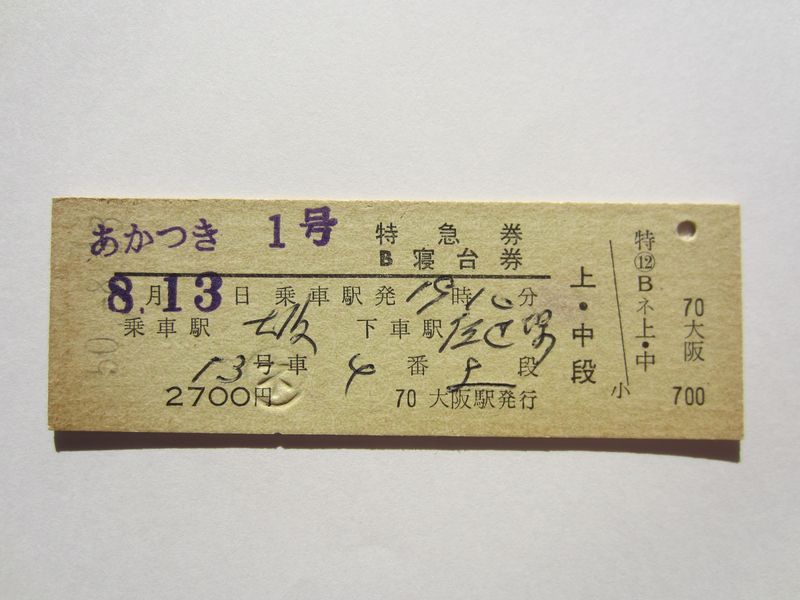 あかつき 1号 特急券
B寝台券
8月13日 乗車駅発19時10分
乗車駅 大阪 下車駅 佐世保
13号車 4番上段
2700円 70 大阪駅発行
上・中段
特⑫Bネ上・中
小
70大阪
700